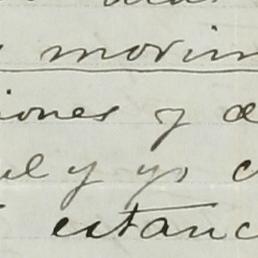 movim
iones y a
el y yo c
estanc